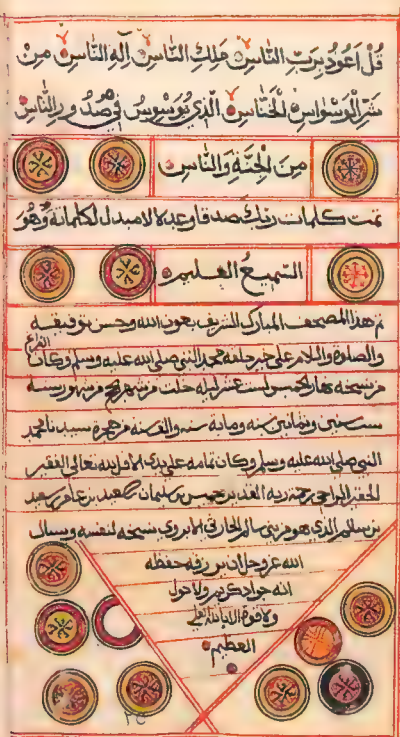 قُلْ اَعُوذُ بِرَبِّ النَّاسِ مَلِكِ النَّاسِ اِلَهِ النَّاسِ مِنْ
شَرِّ الْوَسْوَاسِ الْخَنَّاسِ الَّذِي يُوَسْوِسُ فِي صُدُورِ النَّاسِ
مِنَ الْجِنَّةِ وَالنَّاسِ
تمت كلمات ربك صدقا وعدلا لا مبدل لكلماته وهو
السميع العليم
تم هذا المصحف المبارك الشريف بعون الله وحسن توفيقه
والصلوة والسلام على خير خلقه محمد النبي صلى الله عليه وسلم وكان الفراغ
من نسخه نهار الخميس لست عشر ليلة خلت من شهر من شهور سنة
ست سنين وثمانين سنه ومائة سنه والف سنه من هجرة سيدنا محمد
النبي صلى الله عليه وسلم وكان تمامه على يد الاقل لله تعالى الفقير
الحقير الراجي رحمة ربه بن سلمان بن سعيد بن عامر بن سعيد
بن سالم الذي هو من بني سالم نسخه لنفسه ويسال
الله عز وجل ان يرزقه حفظه
انه جواد كريم ولا حول
ولا قوة الا بالله العلي
العظيم